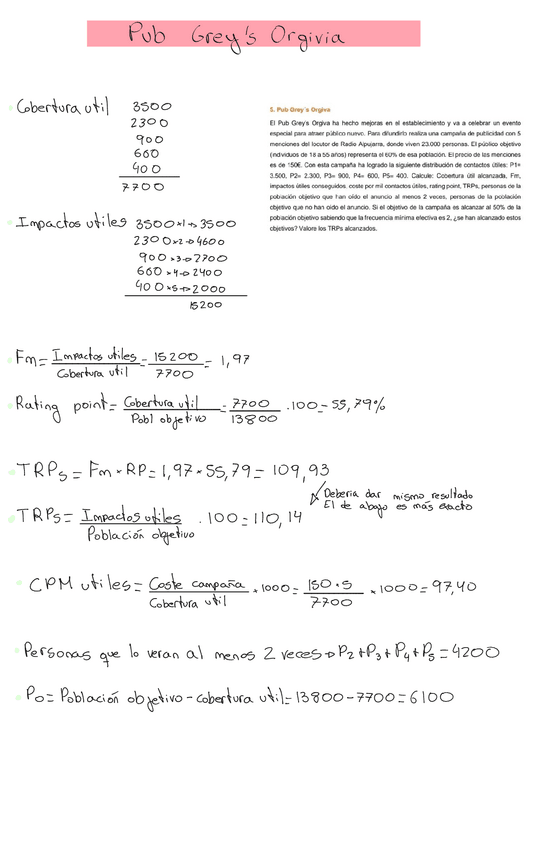 Pub Grey's Orgivia
Cobertura util 3500
2300
900
660
400
7700
5. Pub Grey's Orgiva
El Pub Grey's Orgiva ha hecho mejoras en el establecimiento y va a celebrar un evento
especial para atraer público nuevo. Para difundirlo realiza una campaña de publicidad con 5
menciones del locutor de Radio Alpujarra, donde viven 23.000 personas. El público objetivo
(individuos de 18 a 55 años) representa el 60% de esa población. El precio de las menciones
es de 150€. Con esta campaña ha logrado la siguiente distribución de contactos útiles: P1=
3.500, P2= 2.300, P3= 900, P4= 600, P5= 400. Calcule: Cobertura útil alcanzada, Fm,
impactos útiles conseguidos, coste por mil contactos útiles, rating point, TRPs, personas de la
población objetivo que han oído el anuncio al menos 2 veces, personas de la población
objetivo que no han oído el anuncio. Si el objetivo de la campaña es alcanzar al 50% de la
población objetivo sabiendo que la frecuencia mínima efectiva es 2, ¿se han alcanzado estos
objetivos? Valore los TRPs alcanzados.
Impactos utiles 3500×1→3500
2300×2→4600
900×3→2700
660×4→2400
400×5→2000
15200
Fm= Impactos utiles = 15200 = 1,97
Cobertura util 7700
Rating point= Cobertura util = 7700 .100=55,79%
Pobl objetivo 13800
TRPs = Fm × RP = 1,97 × 55,79 = 109,93
Deberia dar mismo resultado
El de abajo es más exacto
TRPs = Impactos utiles . 100 = 110,14
Población objetivo
CPM utiles = Coste campaña × 1000 = 150 . 5 × 1000 = 97,40
Cobertura util 7700
Personas que lo veran al menos 2 veces → P2+P3+P4+P5=4200
P0= Población objetivo - cobertura util = 13800-7700=6100